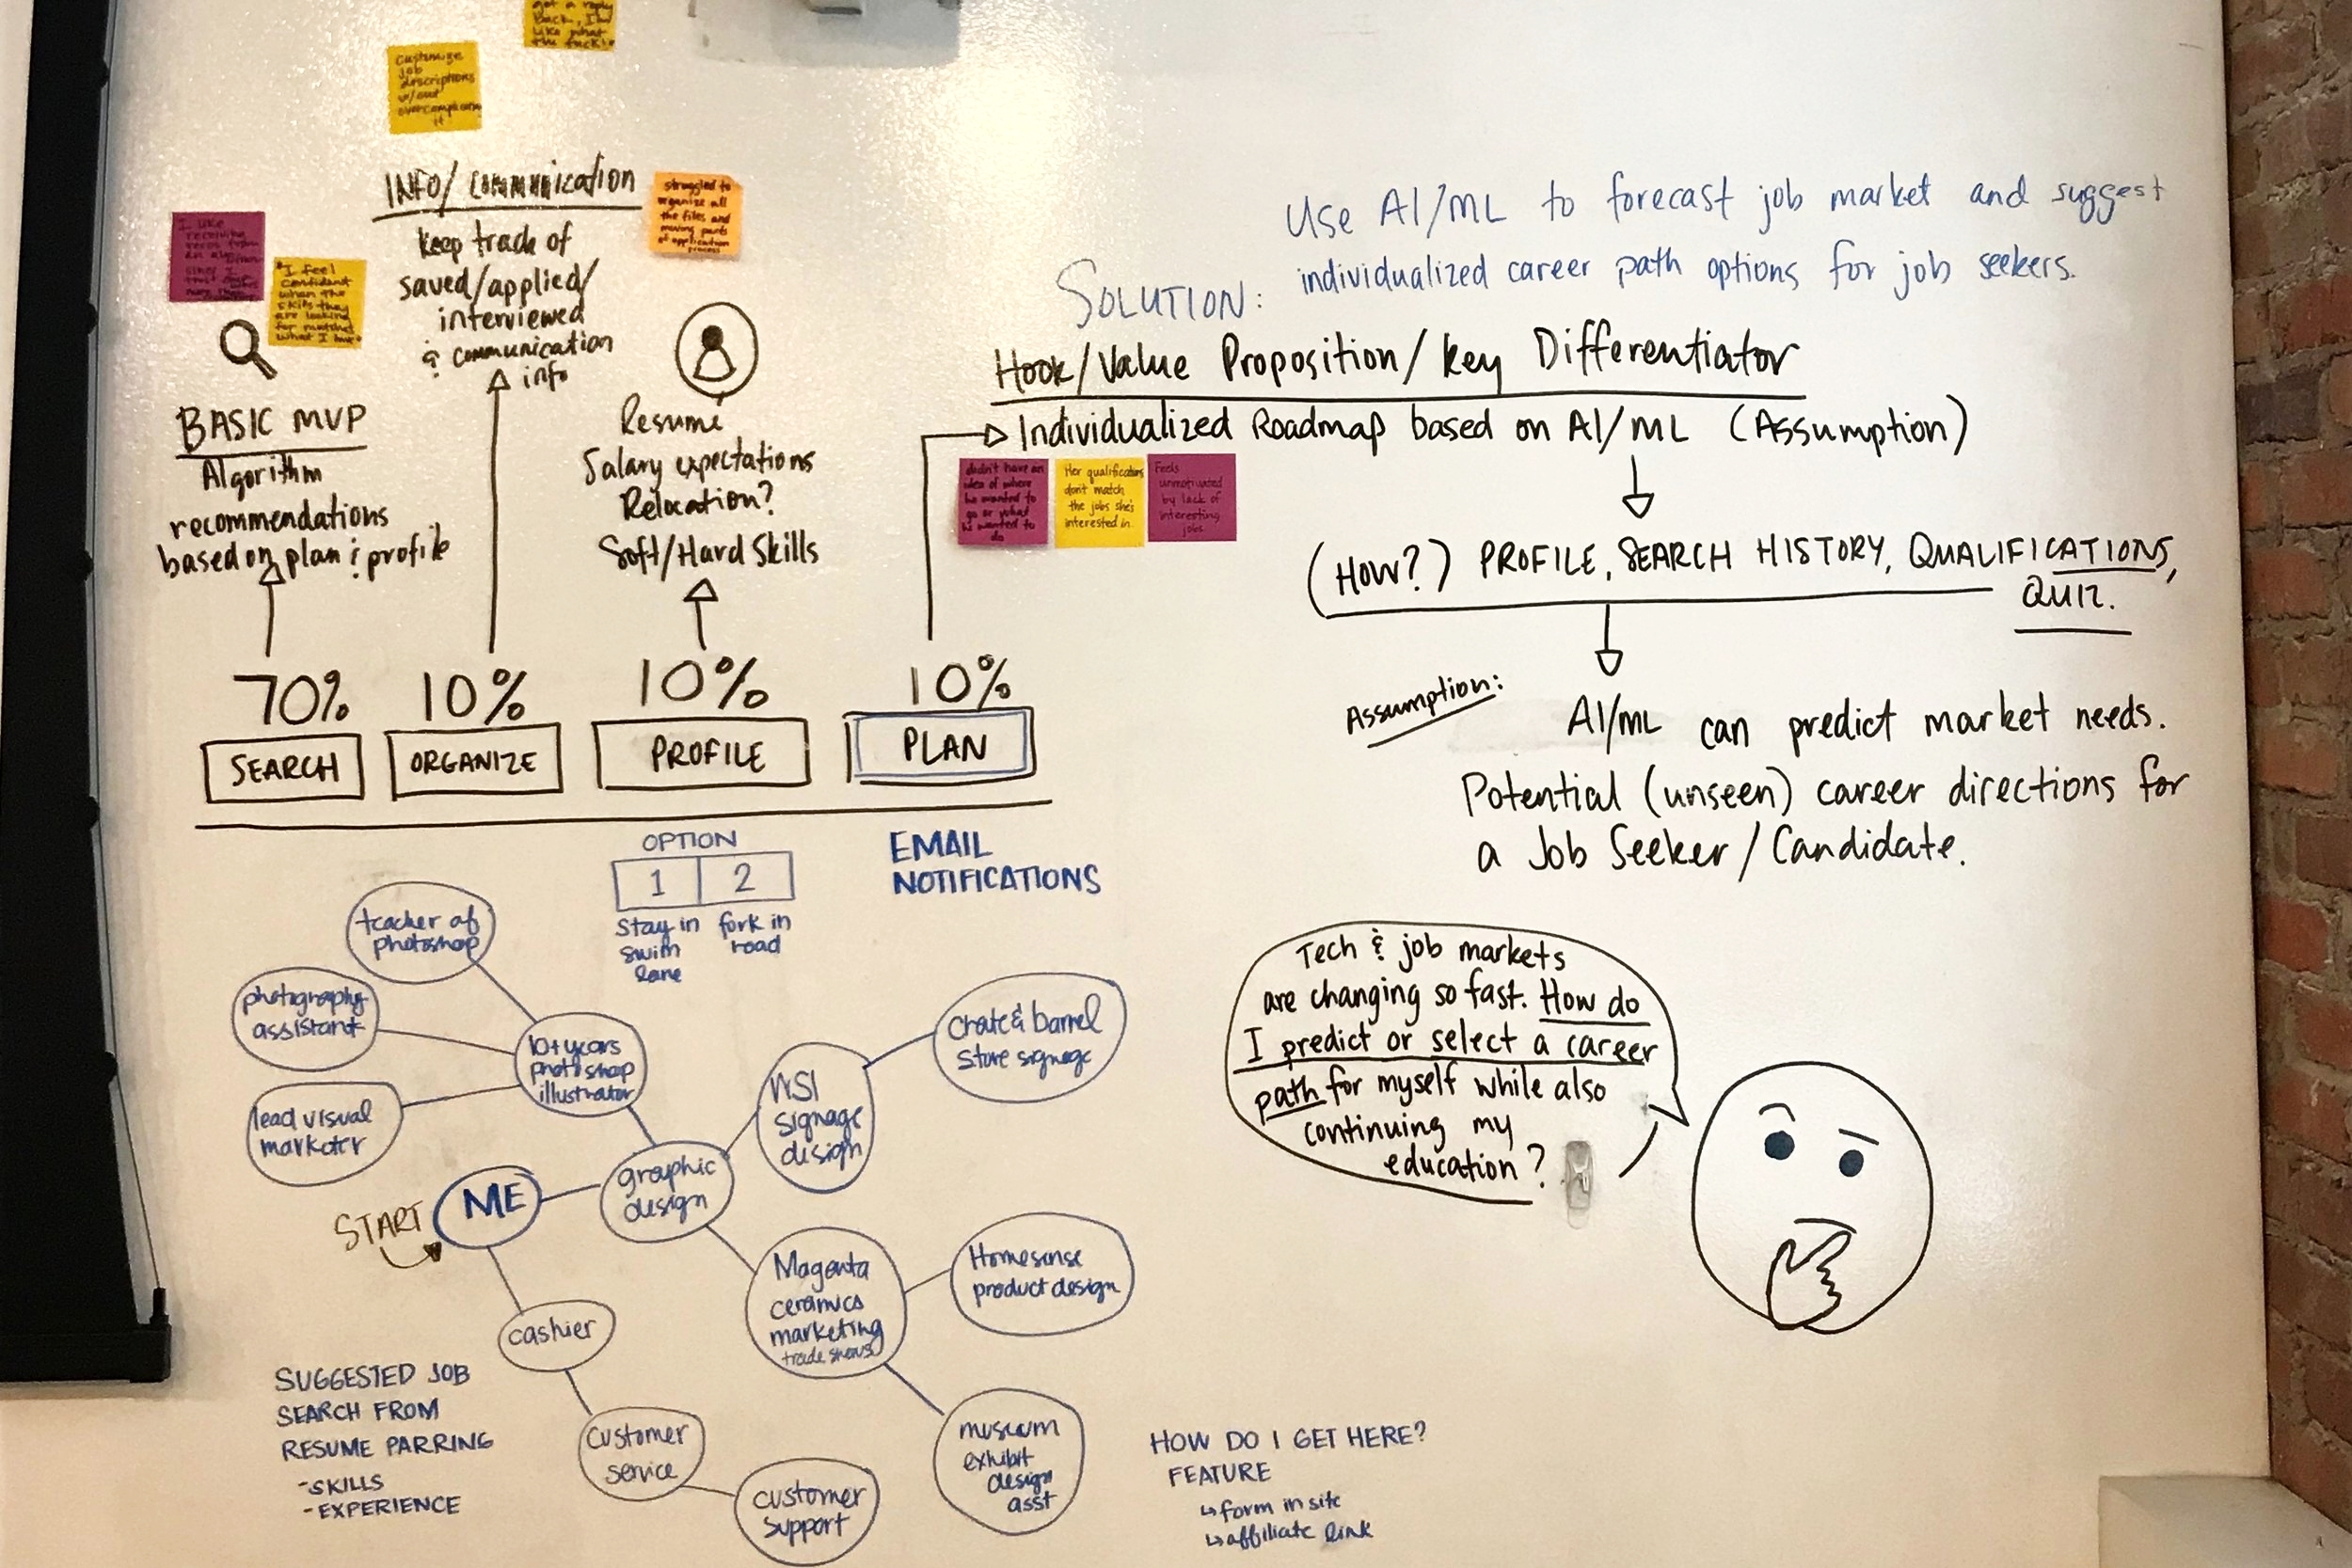 got a reply
Back, I'm
like what
the fuck!
customize
job
descriptions
w/out
overcomplicating
it
INFO/COMMUNICATION
keep track of
saved/applied/
interviewed
& communication
info
struggled to
organize all
the files and
moving parts
of application
process
I like
receiving
"I feel
confident
when the
skills they
are looking
for matches
what I have.
BASIC MVP
Algorithm
recommendations
based on plan & profile
Resumé
Salary expectations
Relocation?
Soft/Hard Skills
70%
SEARCH
10%
ORGANIZE
10%
PROFILE
10%
PLAN
SOLUTION:
Use AI/ML to forecast job market and suggest
individualized career path options for job seekers.
Hook/Value Proposition/Key Differentiator
Individualized Roadmap based on AI/ML (Assumption)
didn't have an
idea of where
he wanted to
go or what
he wanted to
do
Her qualifications
don't match
the jobs she's
interested in
Feels
unmotivated
by lack of
interesting
jobs
(How?) PROFILE, SEARCH HISTORY, QUALIFICATIONS,
QUIZ.
Assumption:
AI/ML can predict market needs.
Potential (unseen) career directions for
a Job Seeker/Candidate.
OPTION
1 2
Stay in
swim
lane
fork in
road
EMAIL
NOTIFICATIONS
teacher of
photoshop
photography
assistant
lead visual
marketer
10+ years
photoshop
illustrator
START
ME
graphic
design
WSI
signage
design
Crate & barrel
Store signage
Magenta
ceramics
marketing
trade shows
Homesense
product design
museum
exhibit
design
asst
cashier
customer
service
customer
support
SUGGESTED JOB
SEARCH FROM
RESUME PARRING
-SKILLS
-EXPERIENCE
HOW DO I GET HERE?
FEATURE
↳ form in site
↳ affiliate link
Tech & job markets
are changing so fast. How do
I predict or select a career
path for myself while also
continuing my
education?